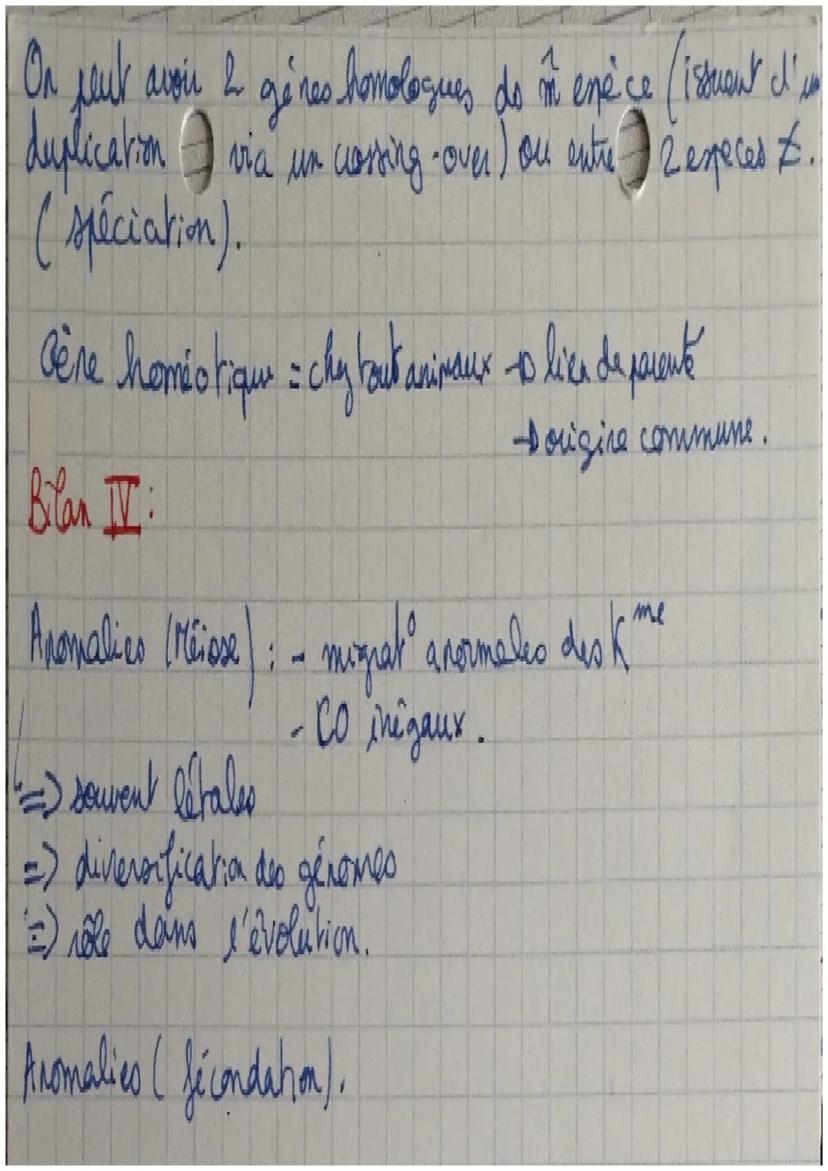 On peut avoir 2 gènes homologues ds m̂ espèce (issuent d'un
duplication via un crossing-over) ou entre 2 espèces ≠.
(spéciation).
Gène homéotique = chez tout animaux → lien de parenté
→ origine commune.
Bilan IV :
Anomalies (Méiose) : - migrat° anormales des K^me
- CO inégaux.
=> souvent létales
=> diversification des génomes
=> rôle dans l'évolution.
Anomalies (fécondation).